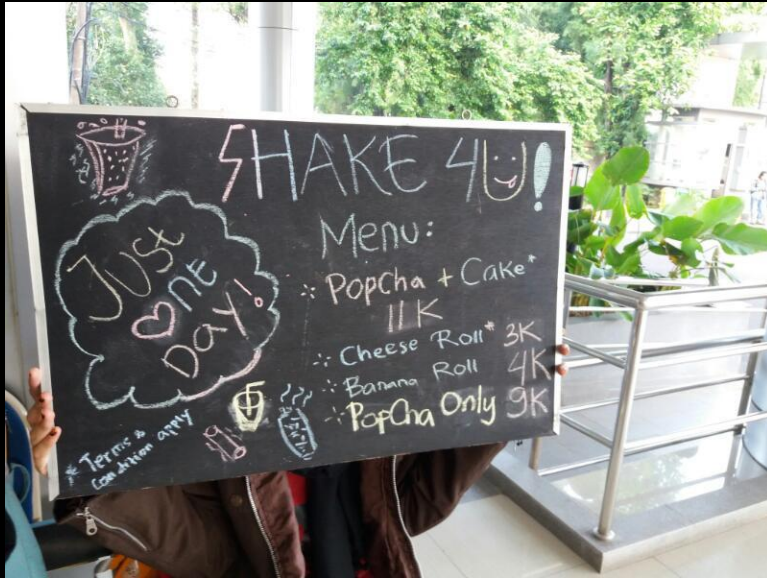 SHAKE 4U!
Just
One
Day!
Menu:
PopCha + Cake*
11K
Cheese Roll* 3K
Banana Roll 4K
PopCha Only 9K
* Terms &
Condition apply